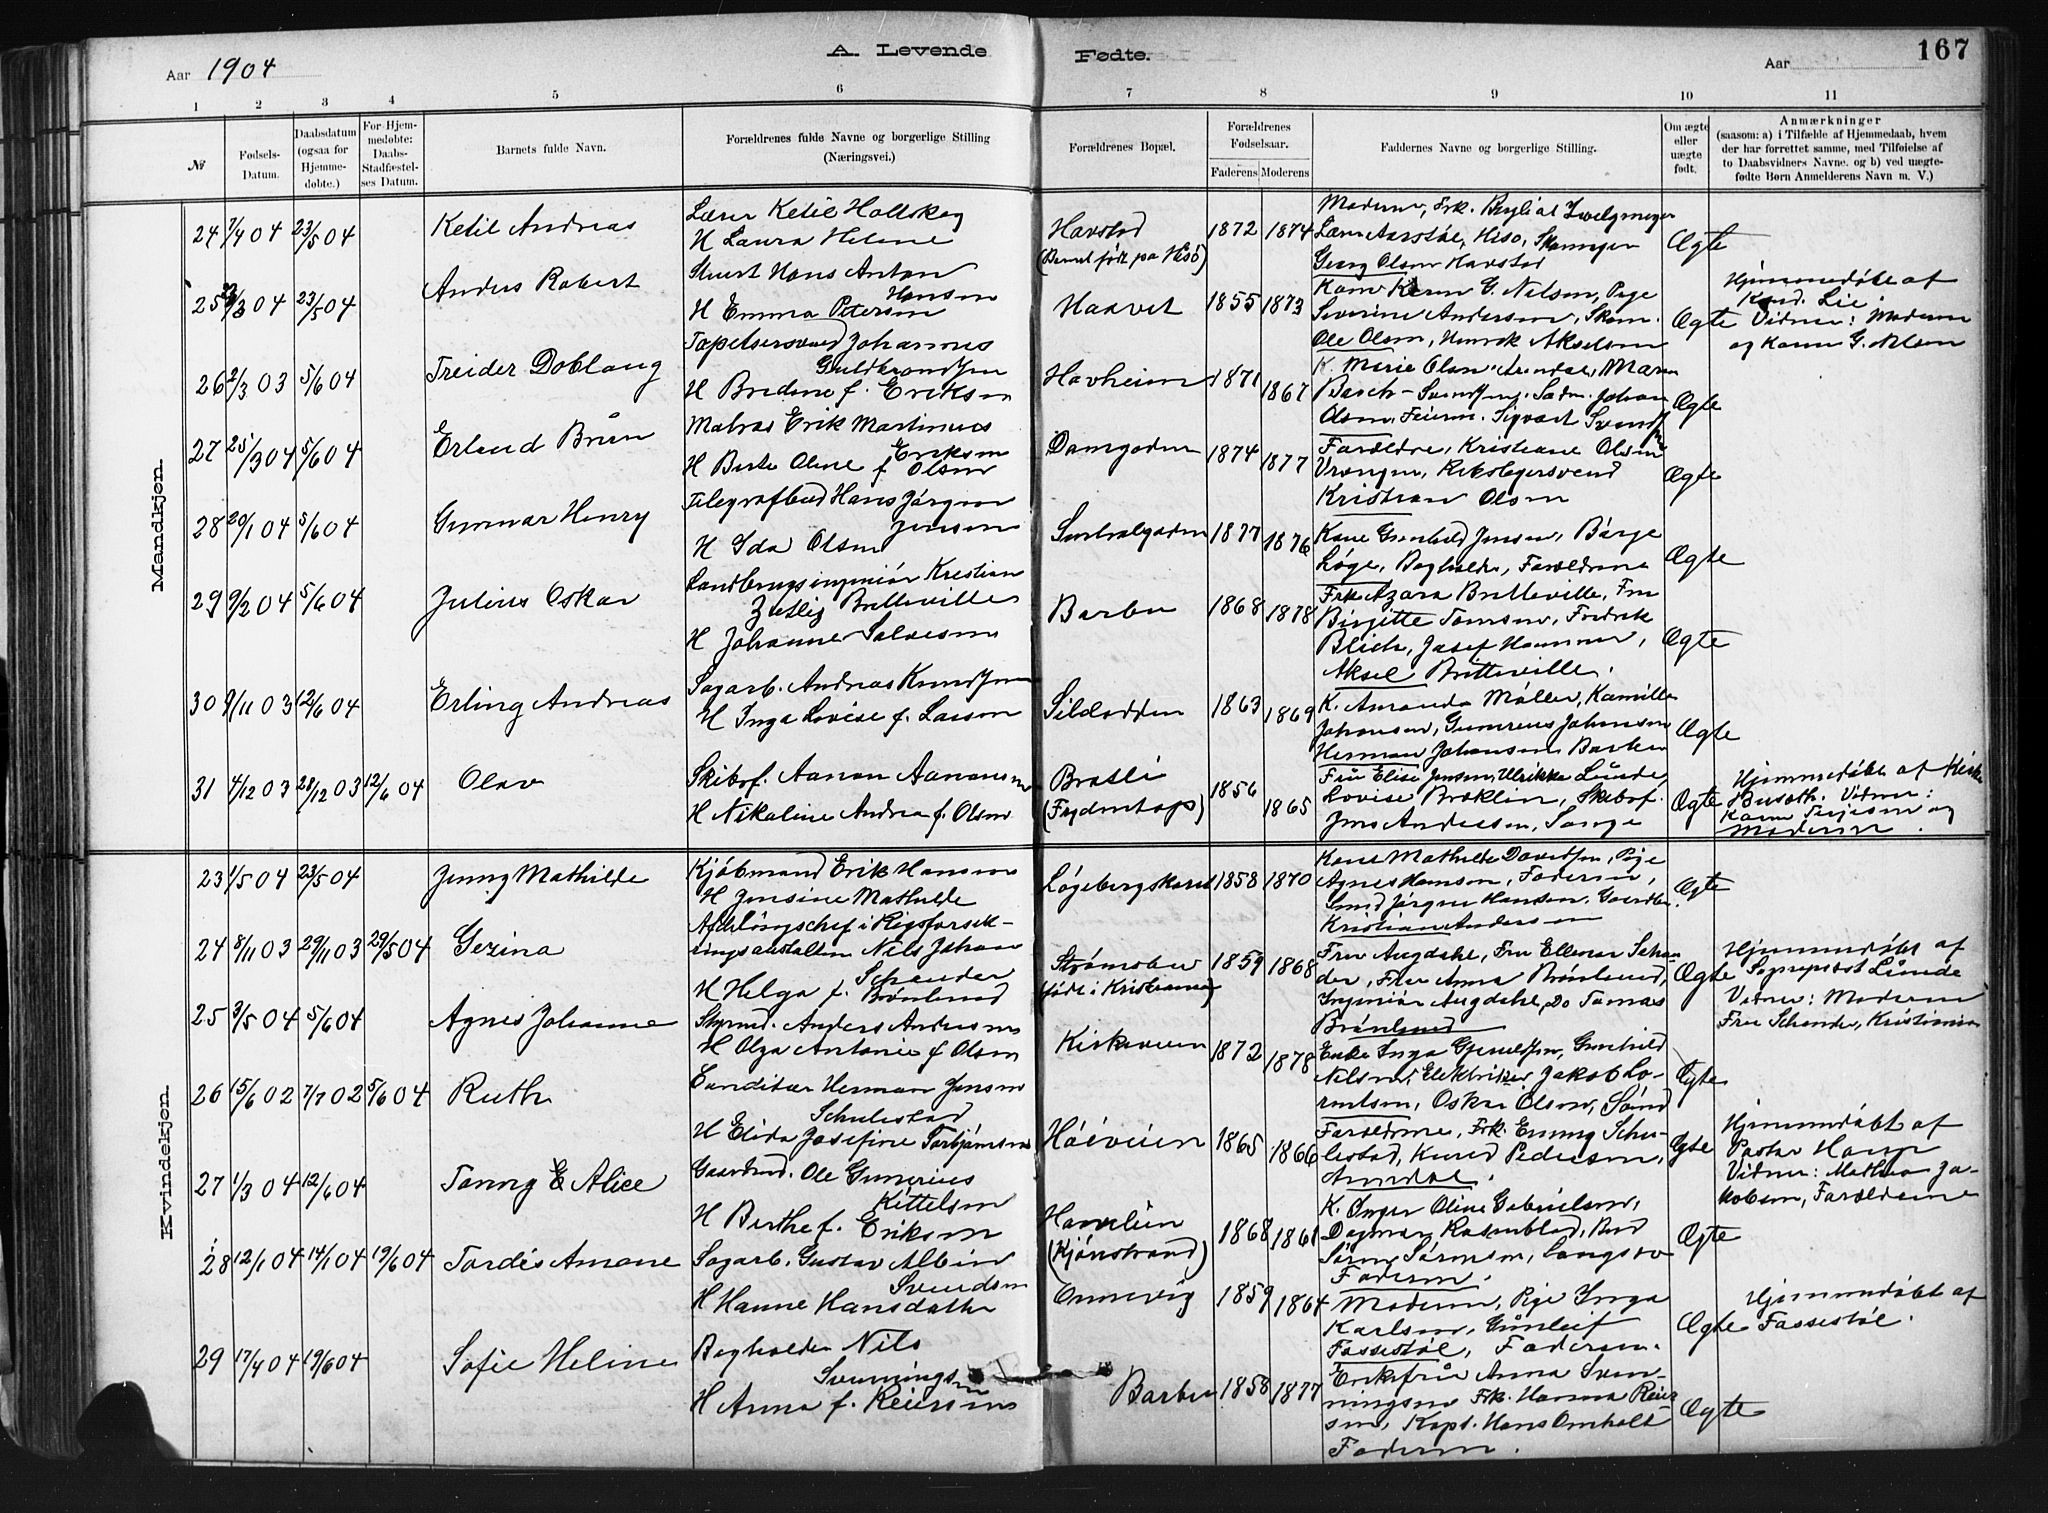 Aar 1904
A. Levende Fødte.
Aar
167
1 2 3 4 5 6 7 8 9 10 11
№
Fødsels-Datum.
Daabsdatum (ogsaa for Hjemmedøbte.)
For Hjemmedøbte: Daabs-Stadfæstelses Datum.
Barnets fulde Navn.
Forældrenes fulde Navne og borgerlige Stilling (Næringsvei.)
Forældrenes Bopæl.
Forældrenes Fødselsaar.
Faderens Moderens
Faddernes Navne og borgerlige Stilling.
Om ægte eller uægte født.
Anmærkninger
(saasom: a) i Tilfælde af Hjemmedaab, hvem
der har forrettet samme, med Tilføielse af
to Daabsvidners Navne. og b) ved uægte-
fødte Børn Anmelderens Navn m. V.)
Mandkjøn.
24 7/4 04 23/5 04 Ketil Andreas
Lærer Ketil
H Laura Helene
Havstad
1872 1874
Georg Olsen Havstad
Ægte
25 /3 04 23/5 04 Anders Robert
Stuert Hans Anton Hansen
H Emma Petersen
Haavet
1855 1873
Kone Karen G. Nilsen, Pige
Severine Andersen, Skom.
Ole Olsen, Henrik Akselsen
Ægte
Hjemmedøbt af
Kand. Lie
Vidner: Moderen
og Karen G. Nilsen
26 2/3 03 5/6 04 Treider Doblaug
Tapetsersvend Johannes
Guldbrandsen
H Bredine f. Eriksen
Havheim
1871 1867
K. Marie Olsen, Arendal, Maren
Olsen, Feierm. Sigvart
Ægte
27 25/3 04 5/6 04 Erland Brun
Matros Erik Martinius
Eriksen
H Berte Oline f Olsen
Damgaden
1874 1877
Forældre, Kristiane Olsen
Vrengen, Rebslagersvend
Kristian Olsen
Ægte
28 20/1 04 5/6 04 Gunnar Henry
Telegrafbud Hans Jørgen
Jensen
H Ida Olsen
1877 1876
Kone Gunhild Jensen, Børge
Løge, Bogholder, Forældrene
Ægte
29 9/2 04 5/6 04 Julius Oskar
Landbrugsingeniør Kristian
Zetlitz Bretteville
H Johanne Salvesen
Barbu
1868 1878
Frk. Azora Bretteville, Fru
Birgitte Tomsen, Fredrik
Blich, Josef Hammer,
Aksel Bretteville.
Ægte
30 9/11 03 12/6 04 Erling Andreas
Sagarb. Andreas Knudsen
H Inga Lovise f. Larsen
Sildodden
1863 1869
K. Amanda Møller, Kamilla
Johansen, Gunerius Johansen
Herman Johansen Barbu
Ægte
31 4/12 03 28/12 03 12/6 04 Olav
Skibsf. Aanon Aanonsen
H Nikoline Andrea f. Olsen
Bratli
1856 1865
Fru Elise Jensen, Ulrikke Lunde
Lovise Bræklin, Skibsf.
Jens Andersen, Songe
Ægte
Hjemmedøbt af Kirkes.
Vidner:
Karen Terjesen og
Moderen.
Kvindekjøn.
23 1/5 04 23/5 04 Jenny Mathilde
Kjøbmand Erik Hansen
H Jensine Mathilde
Løgebergskaret
1858 1870
Kone Mathilde Davidsen, Pige
Agnes Hansen, Faderen,
Smed Jørgen Hansen,
Kristian Andersen
Ægte
24 8/11 03 29/11 03 29/5 04 Gezina
Afdelingschef i Rigsforsik-
ringsanstalten Nils Johan
Schander
H Helga f. Brønlund
Strømsbu
(født i Kristiania)
1859 1868
Fru Augdahl, Fru Ellenor Schan-
der, Frk Anna Brønlund,
Ingeniør Augdahl, Do Tomas
Brønlund
Ægte
Hjemmedøbt af
Sogneprest Lunde
Vidner: Moderen
Fru Schander, Kristiania
25 3/5 04 5/6 04 Agnes Johanne
Styrmd. Anders Andersen
H Olga Antonie f Olsen
Kirkeveien
1872 1878
Enke Inga Gjeruldsen, Gunhild
Nilsen, Elektriker Jakob Lo-
rentsen, Oskar Olsen, Sand
Ægte
26 15/6 02 7/7 02 5/6 04 Ruth
Konditor Herman Jensen
Schulestad
H Elida Josefine Torbjørnsen
Høiveien
1865 1866
Forældrene, Frk. Emmy Schu-
lestad, Knud Pedersen,
Arendal.
Ægte
Hjemmedøbt af
Pastor
Vidner: Mathea Ja-
kobsen, Forældrene
27 1/3 04 12/6 04 Tanny E Alice
Gaardmd. Ole Gunerius
Kittelsen
H Berthe f. Eriksen
(Kjønstrand)
1868 1861
K. Inger Oline Gabrielsen,
Dagmar Rosenblad,
Søren Sørensen, Langsæ
Faderen.
Ægte
28 12/1 04 14/1 04 19/6 04 Tordis Amane
Sagarb. Gustav Albin
Svendsen
H Hanne Hansdatter
Omnevig
1859 1864
Moderen, Pige Inga
Karlsen, Gunleif
Fossestøl, Faderen.
Ægte
Hjemmedøbt af
Fossestøl.
29 17/4 04 19/6 04 Sofie Heline
Bogholder Nils
Svenningsen
H Anna f. Reiersen
Barbu
1858 1877
Enkefru Anna Sven-
ningsen Frk. Hanna Reier-
sen, Kapt. Hans Omholt
Faderen.
Ægte